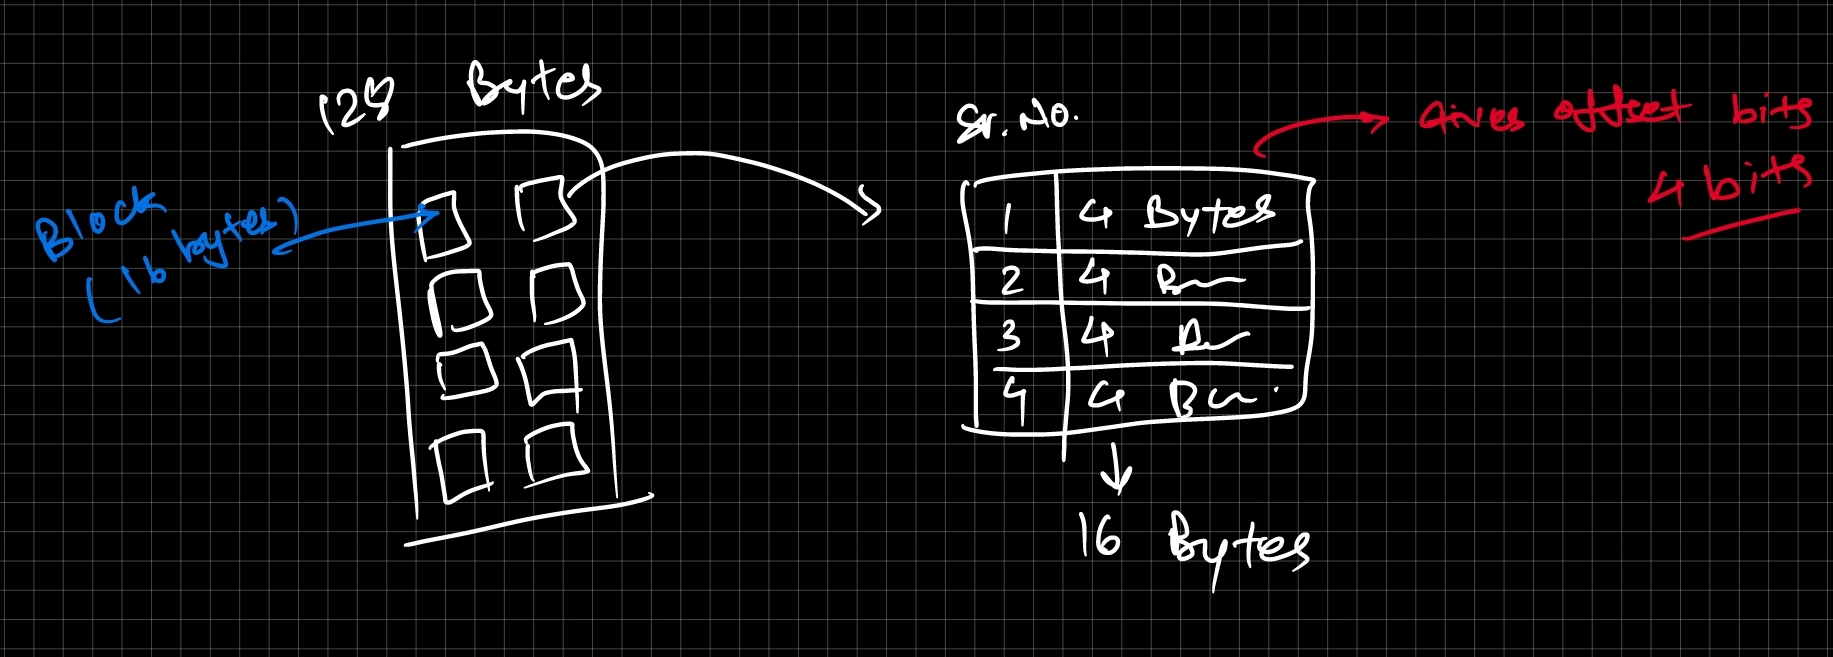 128 Bytes
Block
(16 bytes)
Sr. No.
1 4 Bytes
2 4
3 4
4 4
16 Bytes
Gives offset bits
4 bits